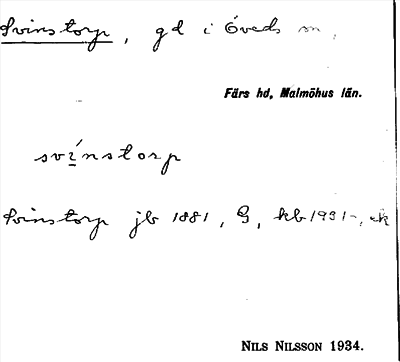 Svinstorp, gd i Öveds sn,
Färs hd, Malmöhus län.
sví̱nstorp
Svinstorp jb 1881, G, kb 1931-, ek
NILS NILSSON 1934.